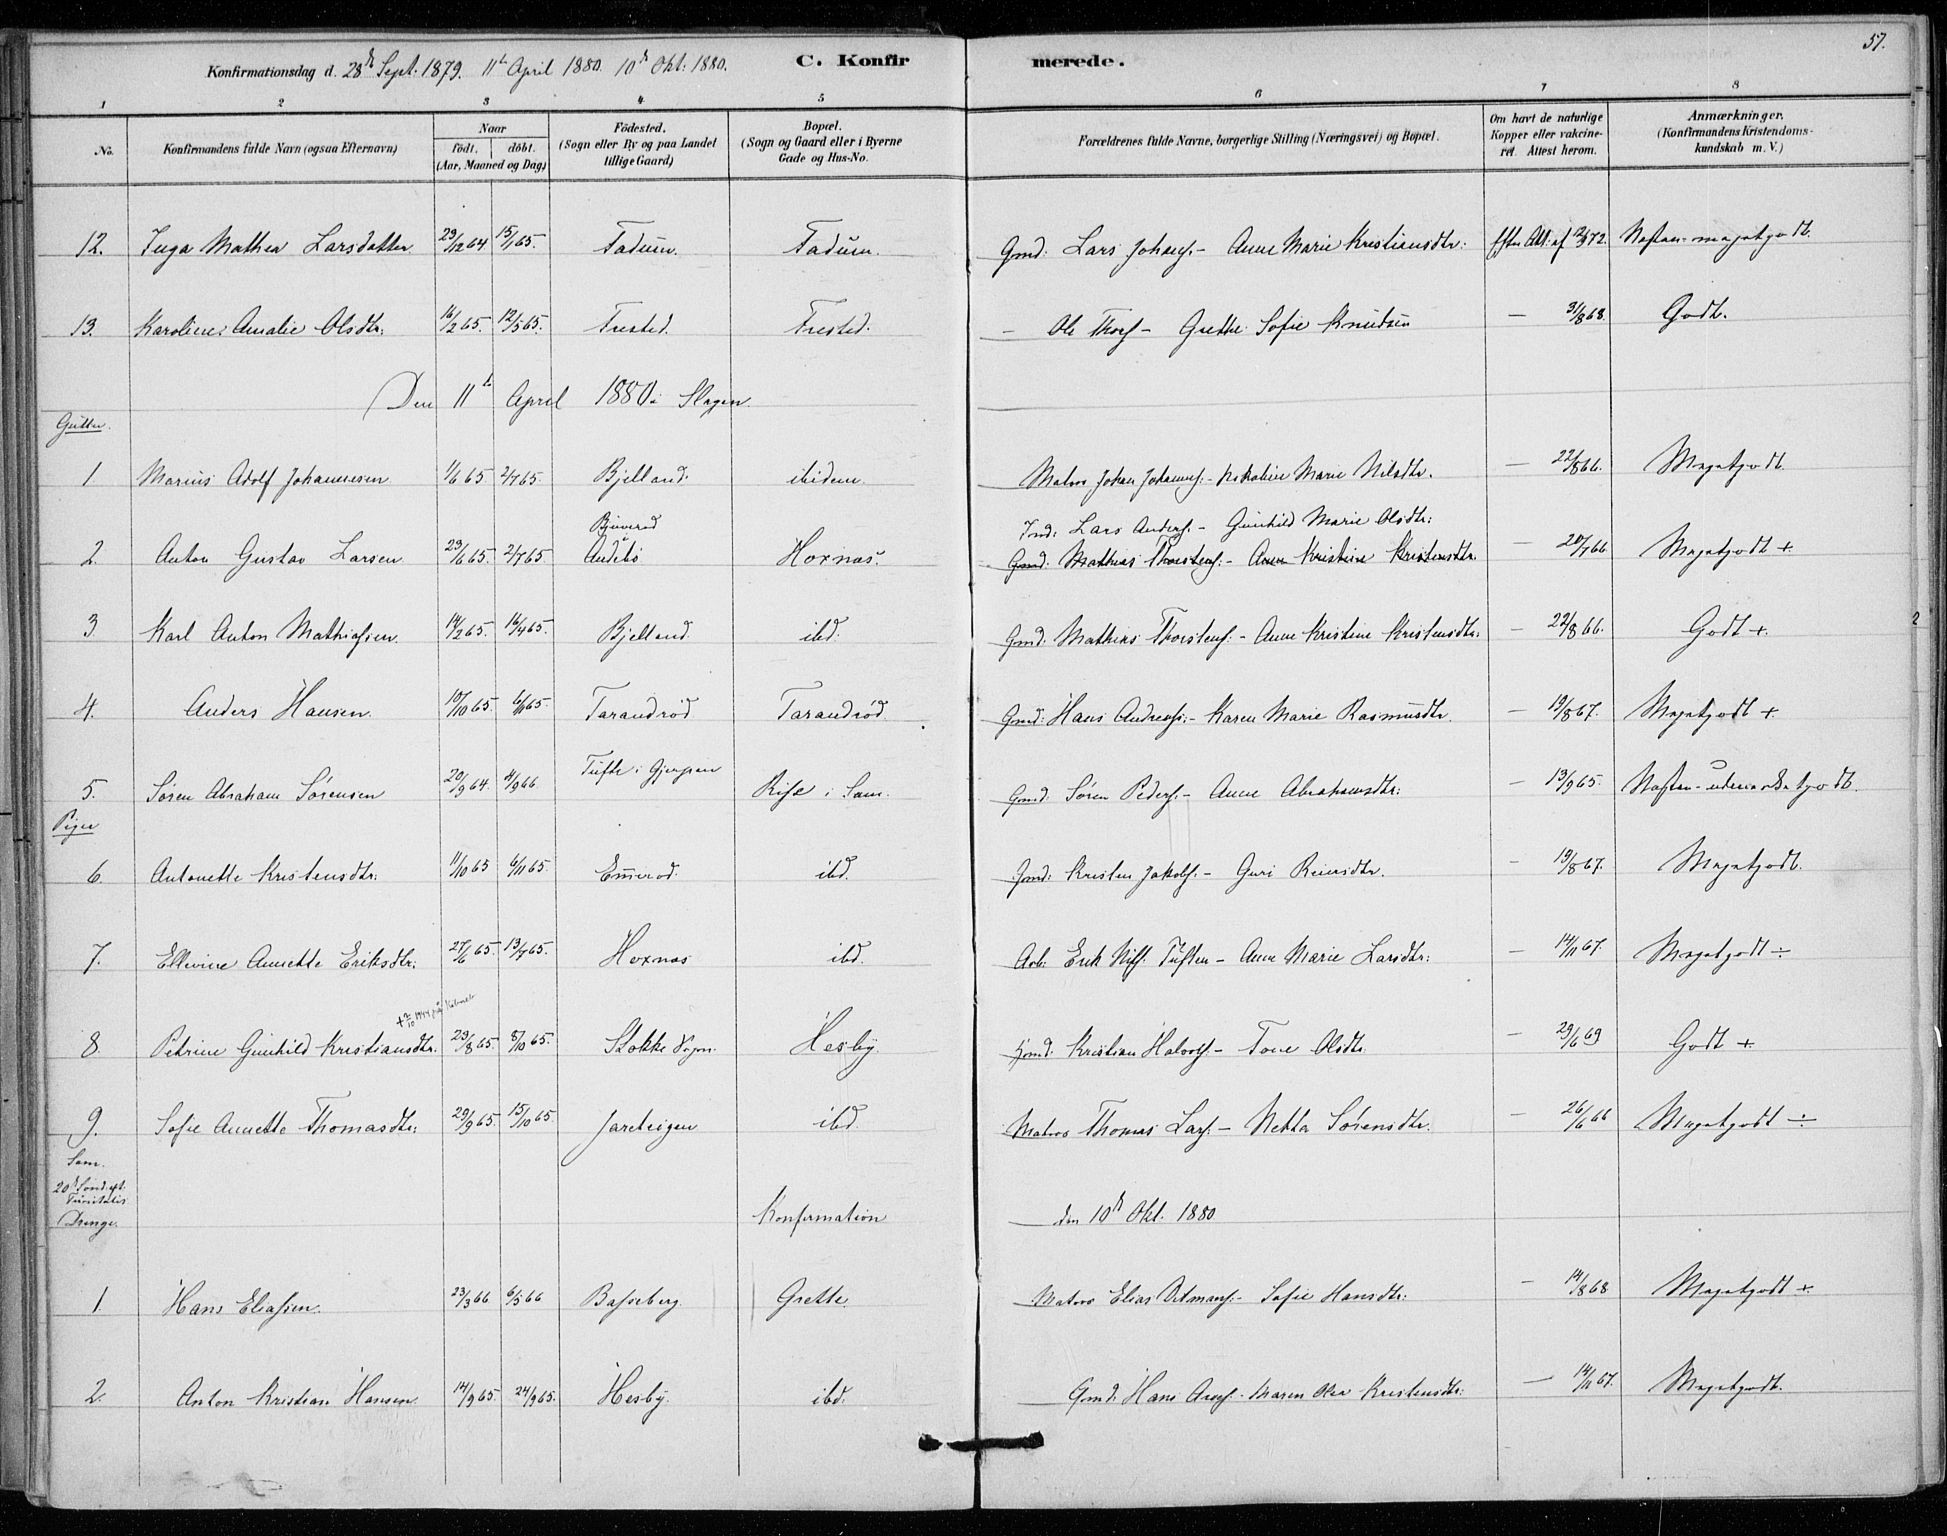 57.
Konfirmationsdag d. 28de Sept. 1879. 11te April 1880. 10de Okt. 1880. C. Konfirmerede.
1 2 3 4 5 6 7 8
No. Konfirmandens fulde Navn (ogsaa Efternavn) Naar født. døbt. (Aar, Maaned og Dag) Födested. (Sogn eller By og paa Landet tillige Gaard) Bopæl. (Sogn og Gaard eller i Byerne Gade og Hus-No. Forældrenes fulde Navne, borgerlige Stilling (Næringsvei) og Bopæl. Om havt de naturlige Kopper eller vakcineret. Attest herom. Anmærkninger. (Konfirmandens Kristendomskundskab m. V.)
12. Inga Mathea Larsdatter 29/12 64 15/1 65. Fadum. Fadum. Gmd: Lars Johans. - Anne Marie Kristiansdtr: 72. Næsten megetgodt.
13. Karoline Amalie Olsdtr: 16/2 65. 12/5 65. Frested. Frested. - Ole Thors. - Grethe Sofie Knudsen — 31/8 68. Godt.
Den 11te April 1880 i Slagen.
Gutter.
1 Marius Adolf Johannesen 1/6 65 2/7 65. Bjelland. ibidem. Matros Johan Johanns. - Nikoline Marie Nilsdtr. — 22/8 66. Megetgodt.
Ind: Lars Anders. - Gunhild Marie Olsdtr:
2. Anton Gustav Larsen 23/6 65. 2/7 65. Bjuerød i Andebø Hoxnas. Gmd: Mathias Thorstens. - Anne Kristine Kristensdtr. — 20/7 66 Megetgodt +
3 Karl Anton Mathiesen 14/2 65. 16/4 65. Bjelland. ibd. Gmd: Mathias Thorstens. - Anne Kristine Kristensdtr: — 22/8 66. Godt +
4. Anders Hansen. 10/10 65. 6/11 65. Tarandrød Tarandrød Gmd: Hans Andreas. - Karen Marie Rasmusdtr. — 19/8 67. Megetgodt +
5. Søren Abraham Sørensen 20/9 64. 4/9 66 Tufte i Gjerpen Rise i Sem. Gmd. Søren Peders. - Anne Abrahamsdtr: — 13/9 65. Næsten-udmærketgodt.
Piger
6. Antonette Kristensdtr: 11/10 65 6/11 65. Emerød. ibd. Gmd: Kristen Jakobs. - Guri Reiersdtr. — 19/8 67. Megetgodt.
7. Ellevine Annette Eriksdtr: 27/6 65. 13/7 65. Hoxnas ibd. Arb. Erik Nils. Tuften - Anne Marie Larsdtr: — 14/11 67. Megetgodt ÷
+ 2/10 1944 på
8. Petrine Gunhild Kristiansdtr. 23/8 65. 8/10 65. Stokke Sogn. Hesby. Gmd: Kristian Halvors. - Tone Olsdtr. — 29/6 69 Godt +
9. Sofie Annette Thomasdtr: 29/9 65. 15/10 65. Jarteigen ibd. Matros Thomas Lars. - Netta Sørensdtr. — 26/6 66 Megetgodt ÷
Sem.
20de Sønd. eft. Trinitatis
Drenge. Konfirmation den 10de Okt. 1880
1. Hans Eliassen. 23/3 66 6/5 66 Basseberg. Grette. Matros Elias Ditmans. - Sofie Hansdtr: — 14/8 68 Megetgodt +
2. Anton Kristian Hansen 14/9 65. 24/9 65. Hesby. ibd. Gmd: Hans - Maren Kristensdtr: — 14/11 67. Megetgodt.